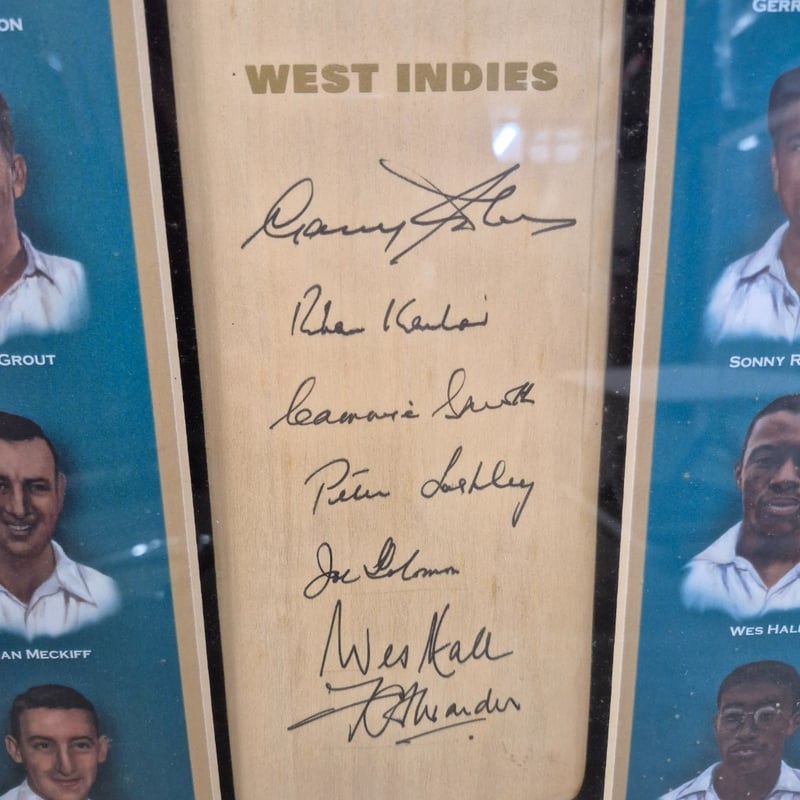 ON
GERR
WEST INDIES
Garry Sobers
Rohan Kanhai
Cammie Smith
GROUT
SONNY R
Peter Lashley
Joe Solomon
WES HALL
AN MECKIFF
Wes Hall
F C Alexander